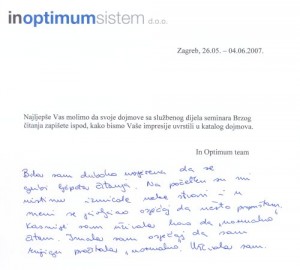 inoptimumsistem d.o.o.
Zagreb, 26.05. – 04.06.2007.
Najljepše Vas molimo da svoje dojmove sa službenog dijela seminara Brzog
čitanja zapišete ispod, kako bismo Vaše impresije uvrstili u katalog dojmova.
In Optimum team
Bila sam duboko uvjerena da se
gubi ljepota čitanja. Na početku su mi
u mislima izmicale neke stvari i u
meni se javljao osjećaj da nešto propuštam.
Kasnije sam uživala kao da "normalno"
čitam. Imala sam osjećaj da sam
knjigu pročitala "normalno". Uživala sam.